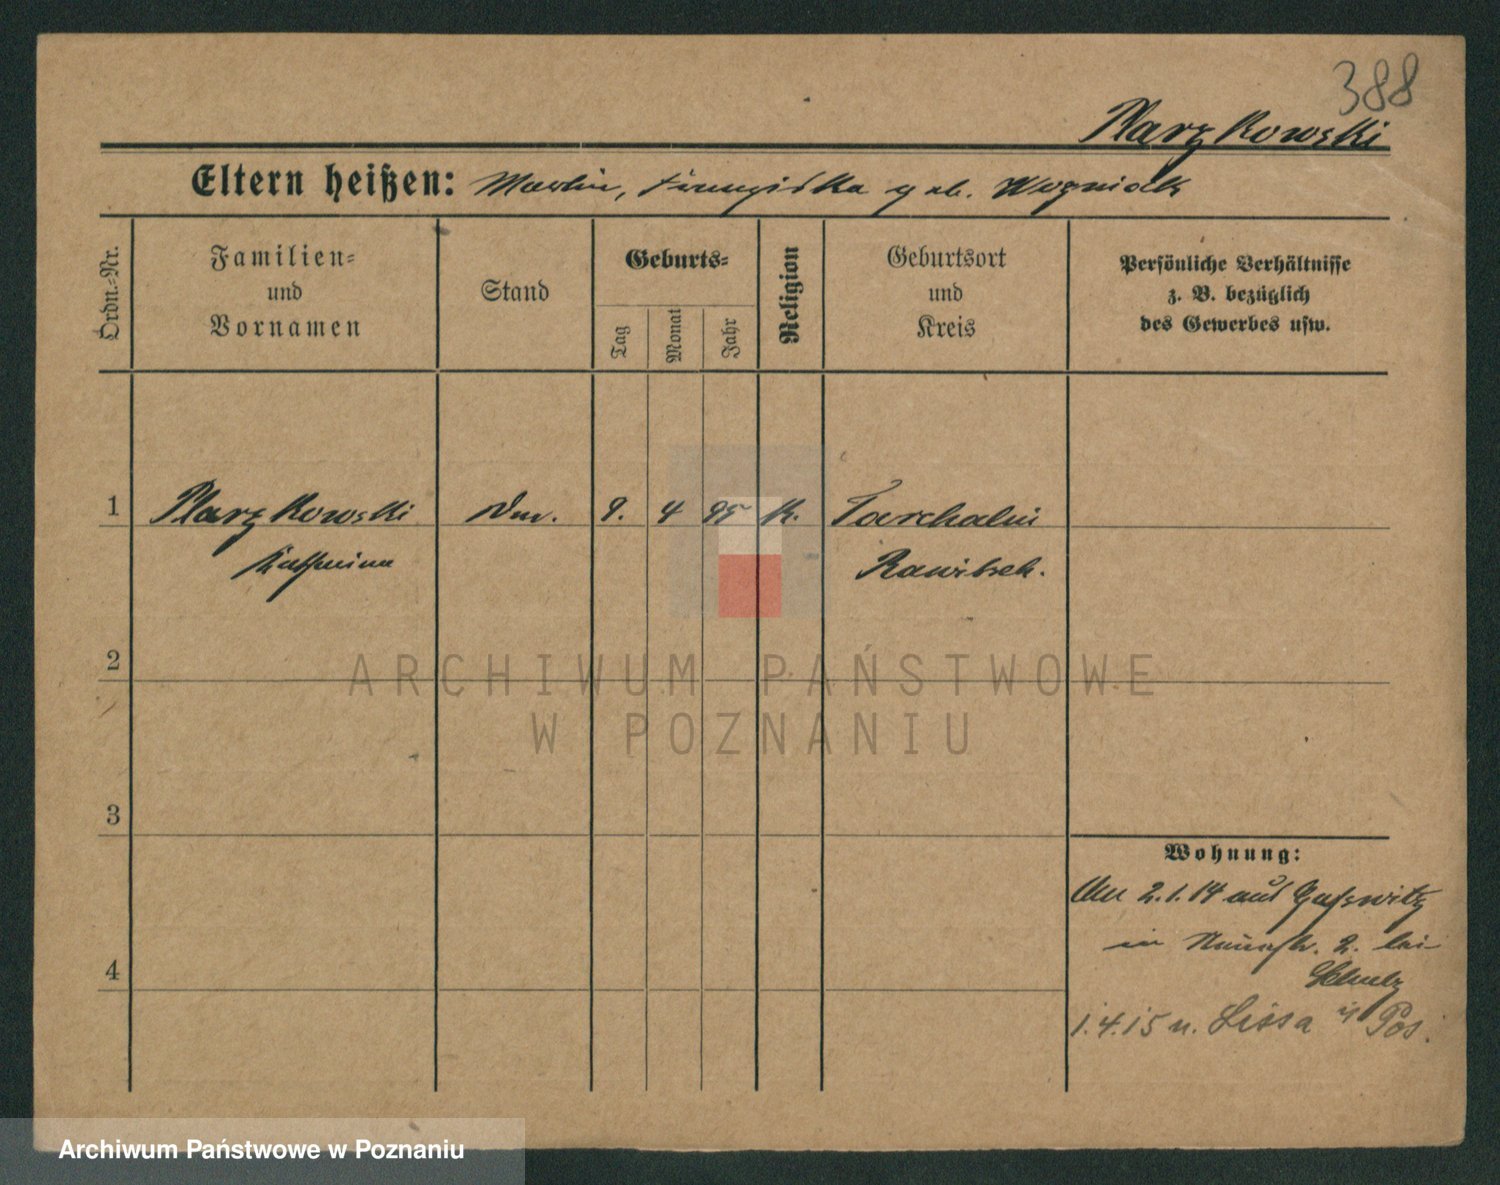 388
Plarzkowski
Eltern heißen: Martin, Franziska geb. Wozniack
Ordn.-Nr.
Familien- und Vornamen
Stand
Geburts-
Tag
Monat
Jahr
Religion
Geburtsort und Kreis
Persönliche Verhältnisse z. B. bezüglich des Gewerbes usw.
1 Plarzkowski 9. 4 95 K. Tarchalin
Katharina Rawitsch.
2
ARCHIWUM PAŃSTWOWE
W POZNANIU
3
Wohnung:
2.1.14 aus
in 2. bei
4
Schulz
1.4.15 n. Lissa i/ Pos.
Archiwum Państwowe w Poznaniu